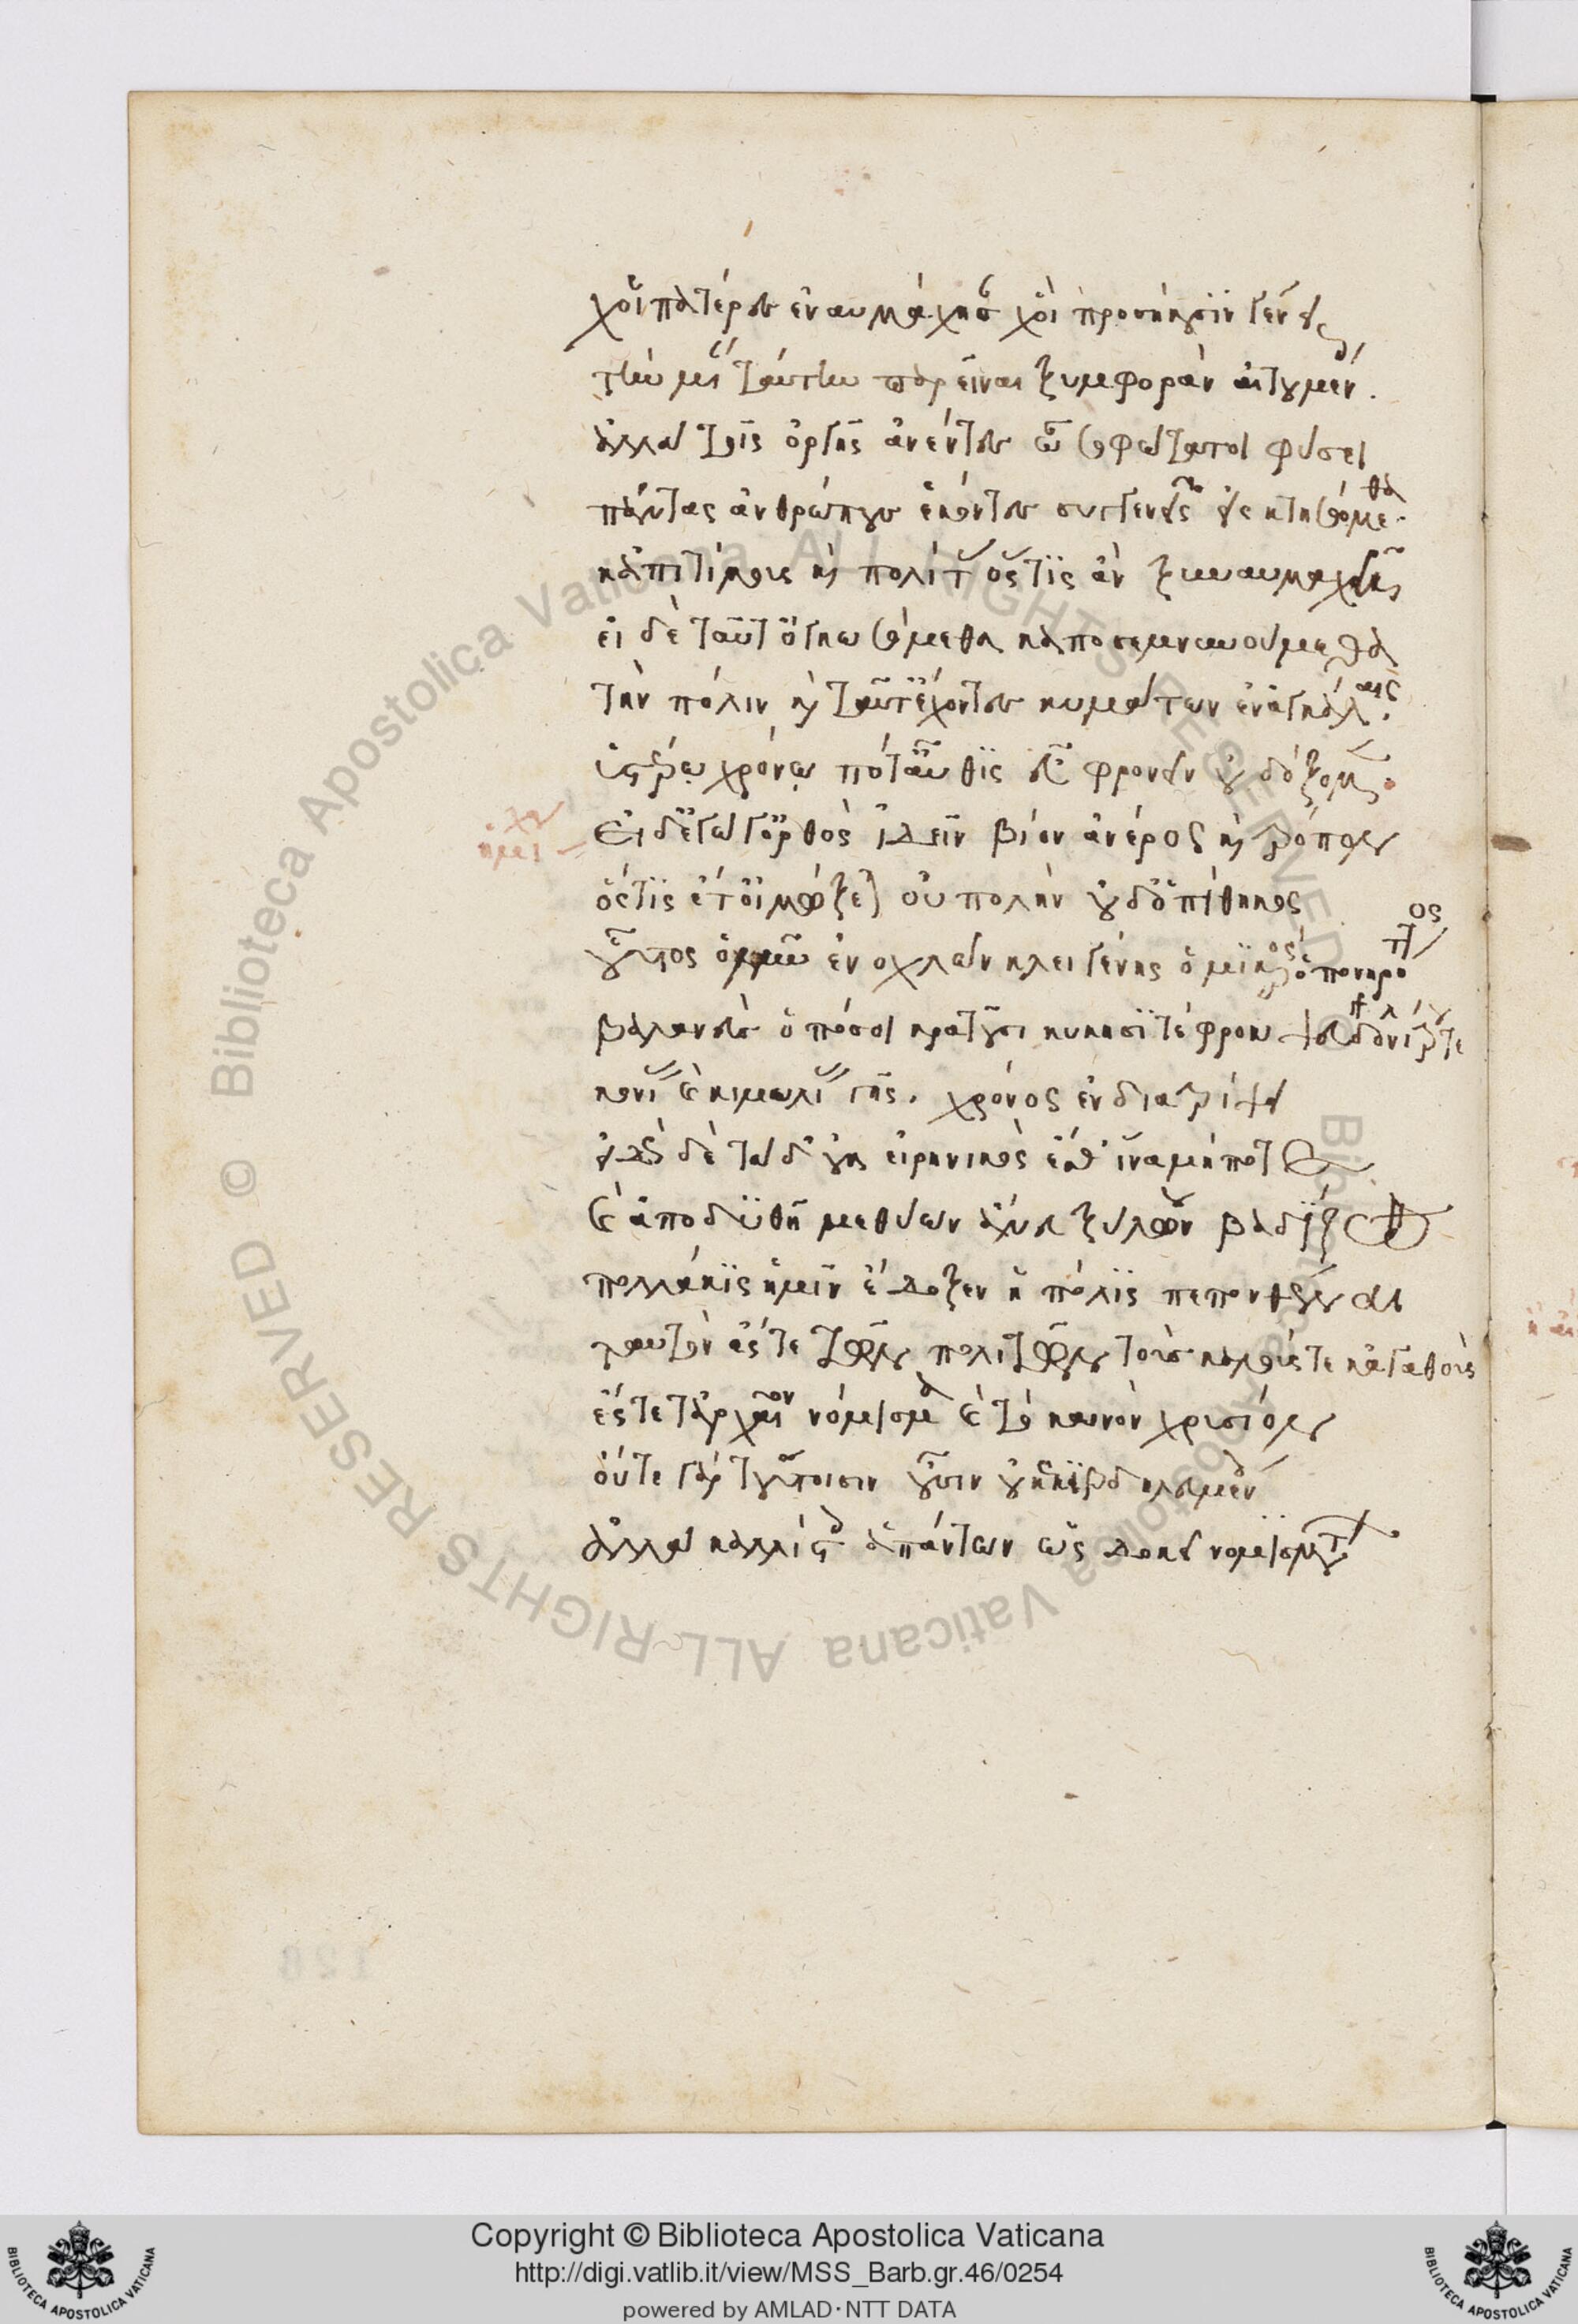 χοἱ πατέρες ἐναυμάχησαν χοἱ προσήκουσιν γένει
τὴν μίαν ταύτην παρεῖναι ξυμφορὰν αἰτουμένοις.
ἀλλὰ τῆς ὀργῆς ἀνέντες ὦ σοφώτατοι φύσει
πάντας ἀνθρώπους ἑκόντες συγγενεῖς κτησόμεθα
κἀπιτίμους καὶ πολίτας ὅστις ἂν ξυνναυμαχῇ
εἰ δὲ ταῦτ' ὀγκωσόμεθα κἀποσεμνυνούμεθα
τὴν πόλιν καὶ ταῦτ' ἔχοντες κυμάτων ἐν ἀγκάλαις.
ὑστέρῳ χρόνῳ ποτ' αὖθις εὖ φρονεῖν οὐ δόξομεν.
εἰ δ' ἐγὼ γ' ὀρθὸς ἰδεῖν βίον ἀνέρος ἢ τρόπον
ὅστις ἔτ' οἰμώξεται οὐ πολὺν οὐδ' ὁ πίθηκος
οὗτος ὁ νῦν ἐνοχλῶν κλειγένης ὁ μικρός ὁ πονηρότατος
βαλανεὺς ὁπόσοι κρατοῦσι κυκησιτέφρου ψευδονίτρου τε
κονίας καὶ κιμωλίας γῆς. χρόνον ἐνδιατρίψει
ἰδὼν δὲ τάδ' οὐκ εἰρηνικὸς ἔσθ' ἵνα μήποτε
καὶ ἀποδυθῇ μεθύων ἄνευ ξύλου βαδίζων
πολλάκις ἡμῖν ἔδοξεν ἡ πόλις πεπονθέναι
ταυτὸν ἔς τε τῶν πολιτῶν τοὺς καλούς τε κἀγαθοὺς
ἔς τε τἀρχαῖον νόμισμα καὶ τὸ καινὸν χρυσίον
οὔτε γὰρ τούτοισιν οὖσιν οὐ κεκιβδηλευμένοις
ἀλλὰ καλλίστοις ἁπάντων ὡς δοκεῖ νομισμάτων
Copyright © Biblioteca Apostolica Vaticana
http://digi.vatlib.it/view/MSS_Barb.gr.46/0254
powered by AMLAD·NTT DATA